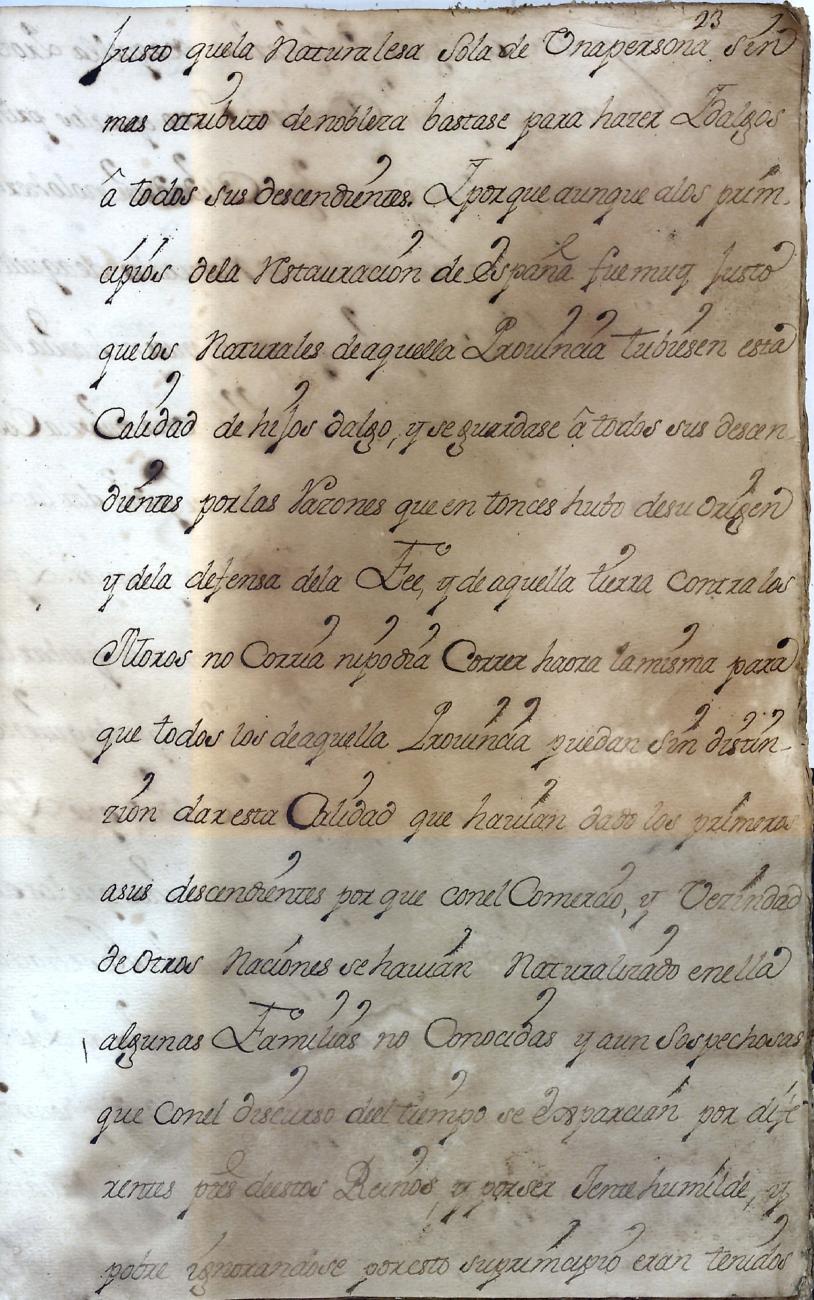 23
Justo quela Naturalesa Sola de Vnapersona sin
mas atributo denobleza bastase para hazer Idalgos
â todos sus descendientes. Yporque aunque alos prin-
cipios dela Restauracion de España fue muy Justo
que los Naturales deaquella Prouincia tubiesen esta
Calidad de hejos dalgo, y se guardase â todos sus descen
dientes por las Varones que en tonces hubo desu origen
y dela defensa dela Fee, y de aquella tierra contra los
Moros no Corria nipodia Correr haora la misma para
que todos los deaquella Prouincia puedan sin distin-
zion dar esta Calidad que hauian dado los primeros
asus descendientes por que conel Comercio, y Vezindad
de Otros Naciones se hauian Naturalizado enella
algunas Familias no Conocidas y aun Sospechosas
que Conel discurso del tiempo se Esparcian por dife
rentes pres deestos Reinos, y porser Jente humilde, y
pobre ignorandose poresto suprincipio eran tenidos